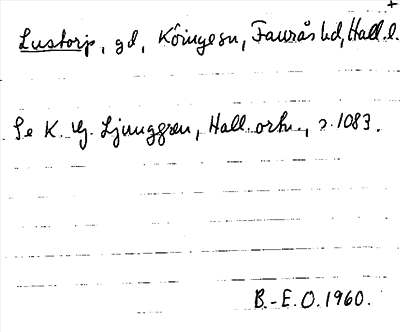 +
Lustorp, gd, Köinge sn, Faurås hd, Hall. l.
Se K. G. Ljunggren, Hall. ortn., s. 1083.
B.-E. O. 1960.